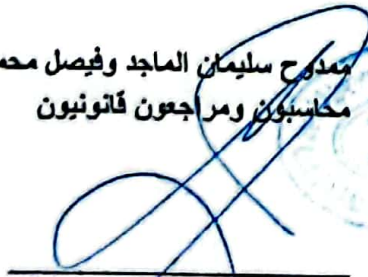 ممدوح سليمان الماجد وفيصل محم
محاسبون ومراجعون قانونيون